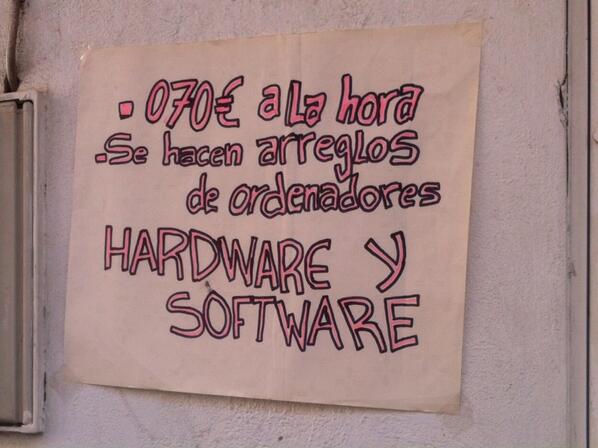 . 070€ a La hora
-Se hacen arreglos
de ordenadores
HARDWARE Y
SOFTWARE